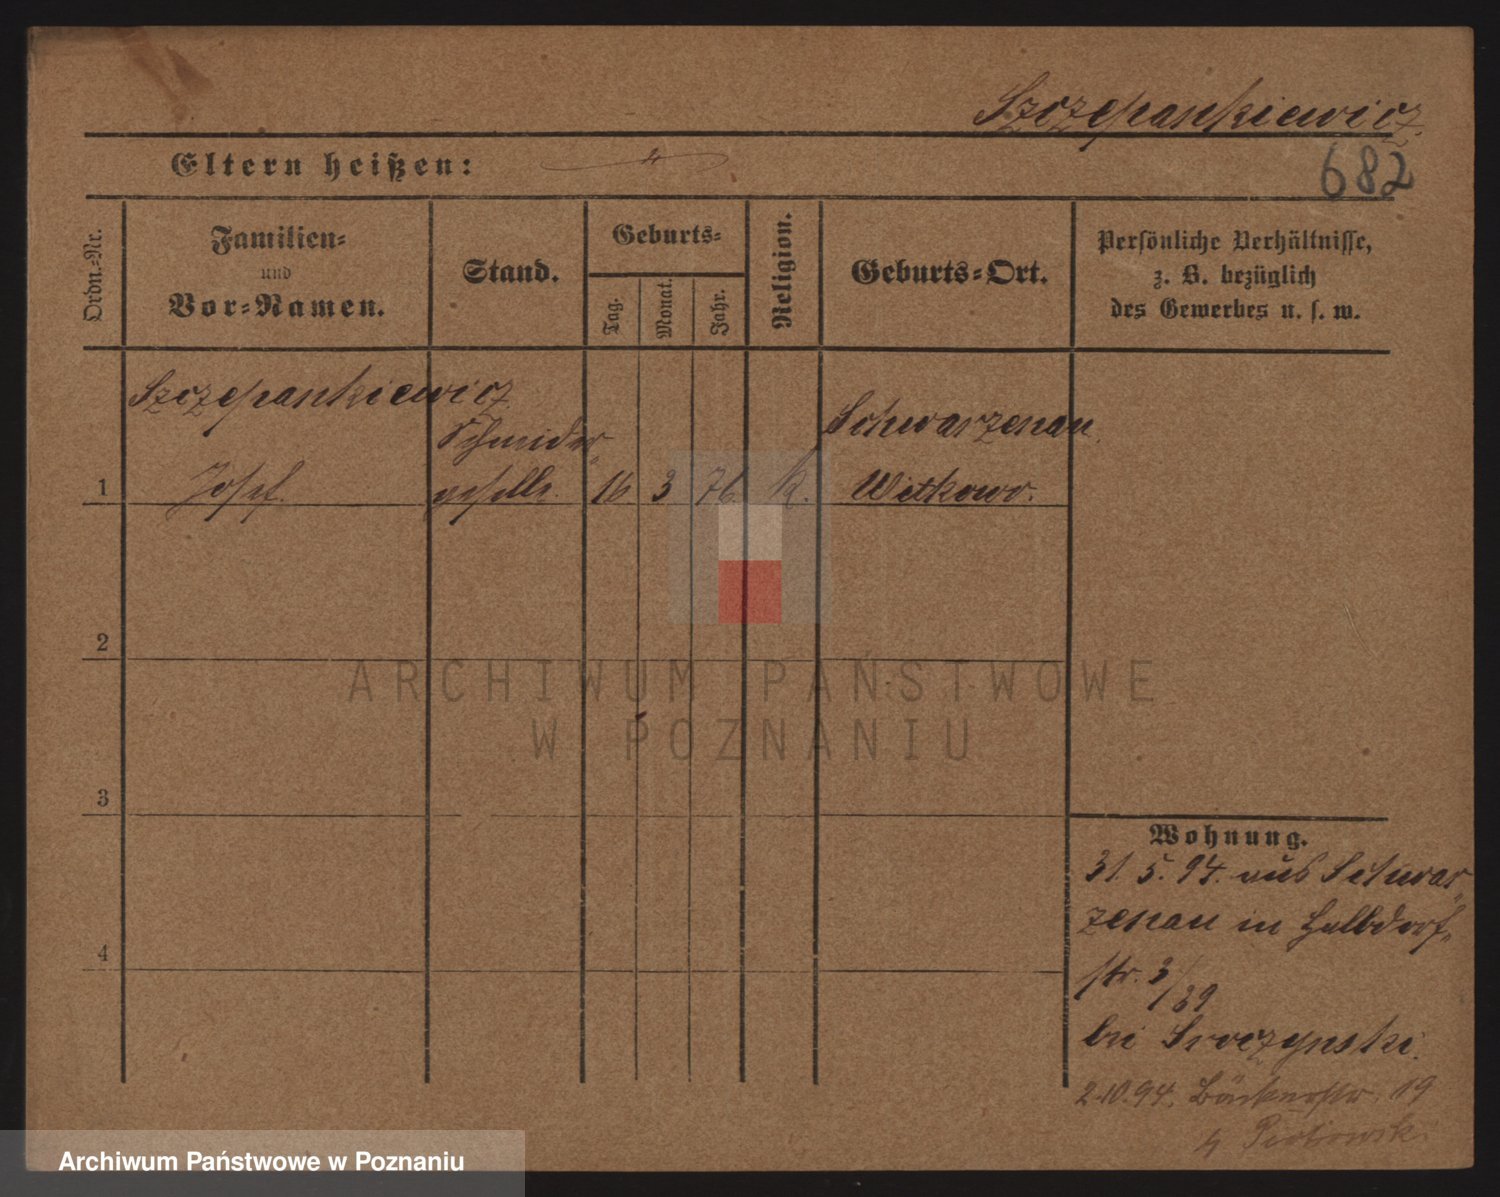 Szczepankiewicz.
Eltern heißen:
682
Ordn.-Nr.
Familien-
und
Vor-Namen.
Stand.
Geburts-
Tag.
Monat.
Jahr.
Religion.
Geburts-Ort.
Persönliche Verhältnisse,
z. B. bezüglich
des Gewerbes u. s. w.
Szczepankiewicz
Schneider-
Schwarzenau
1 Josef. geselle. 16 3 76 k. Witkowo.
2
3
4
Wohnung.
31. 5. 94. aus Schwar-
zenau in Halbdorf-
str. 3/39
bei Sroczynski.
2.10.94. Bäckerstr. 19
Piotrowski
ARCHIWUM PAŃSTWOWE
W POZNANIU
Archiwum Państwowe w Poznaniu